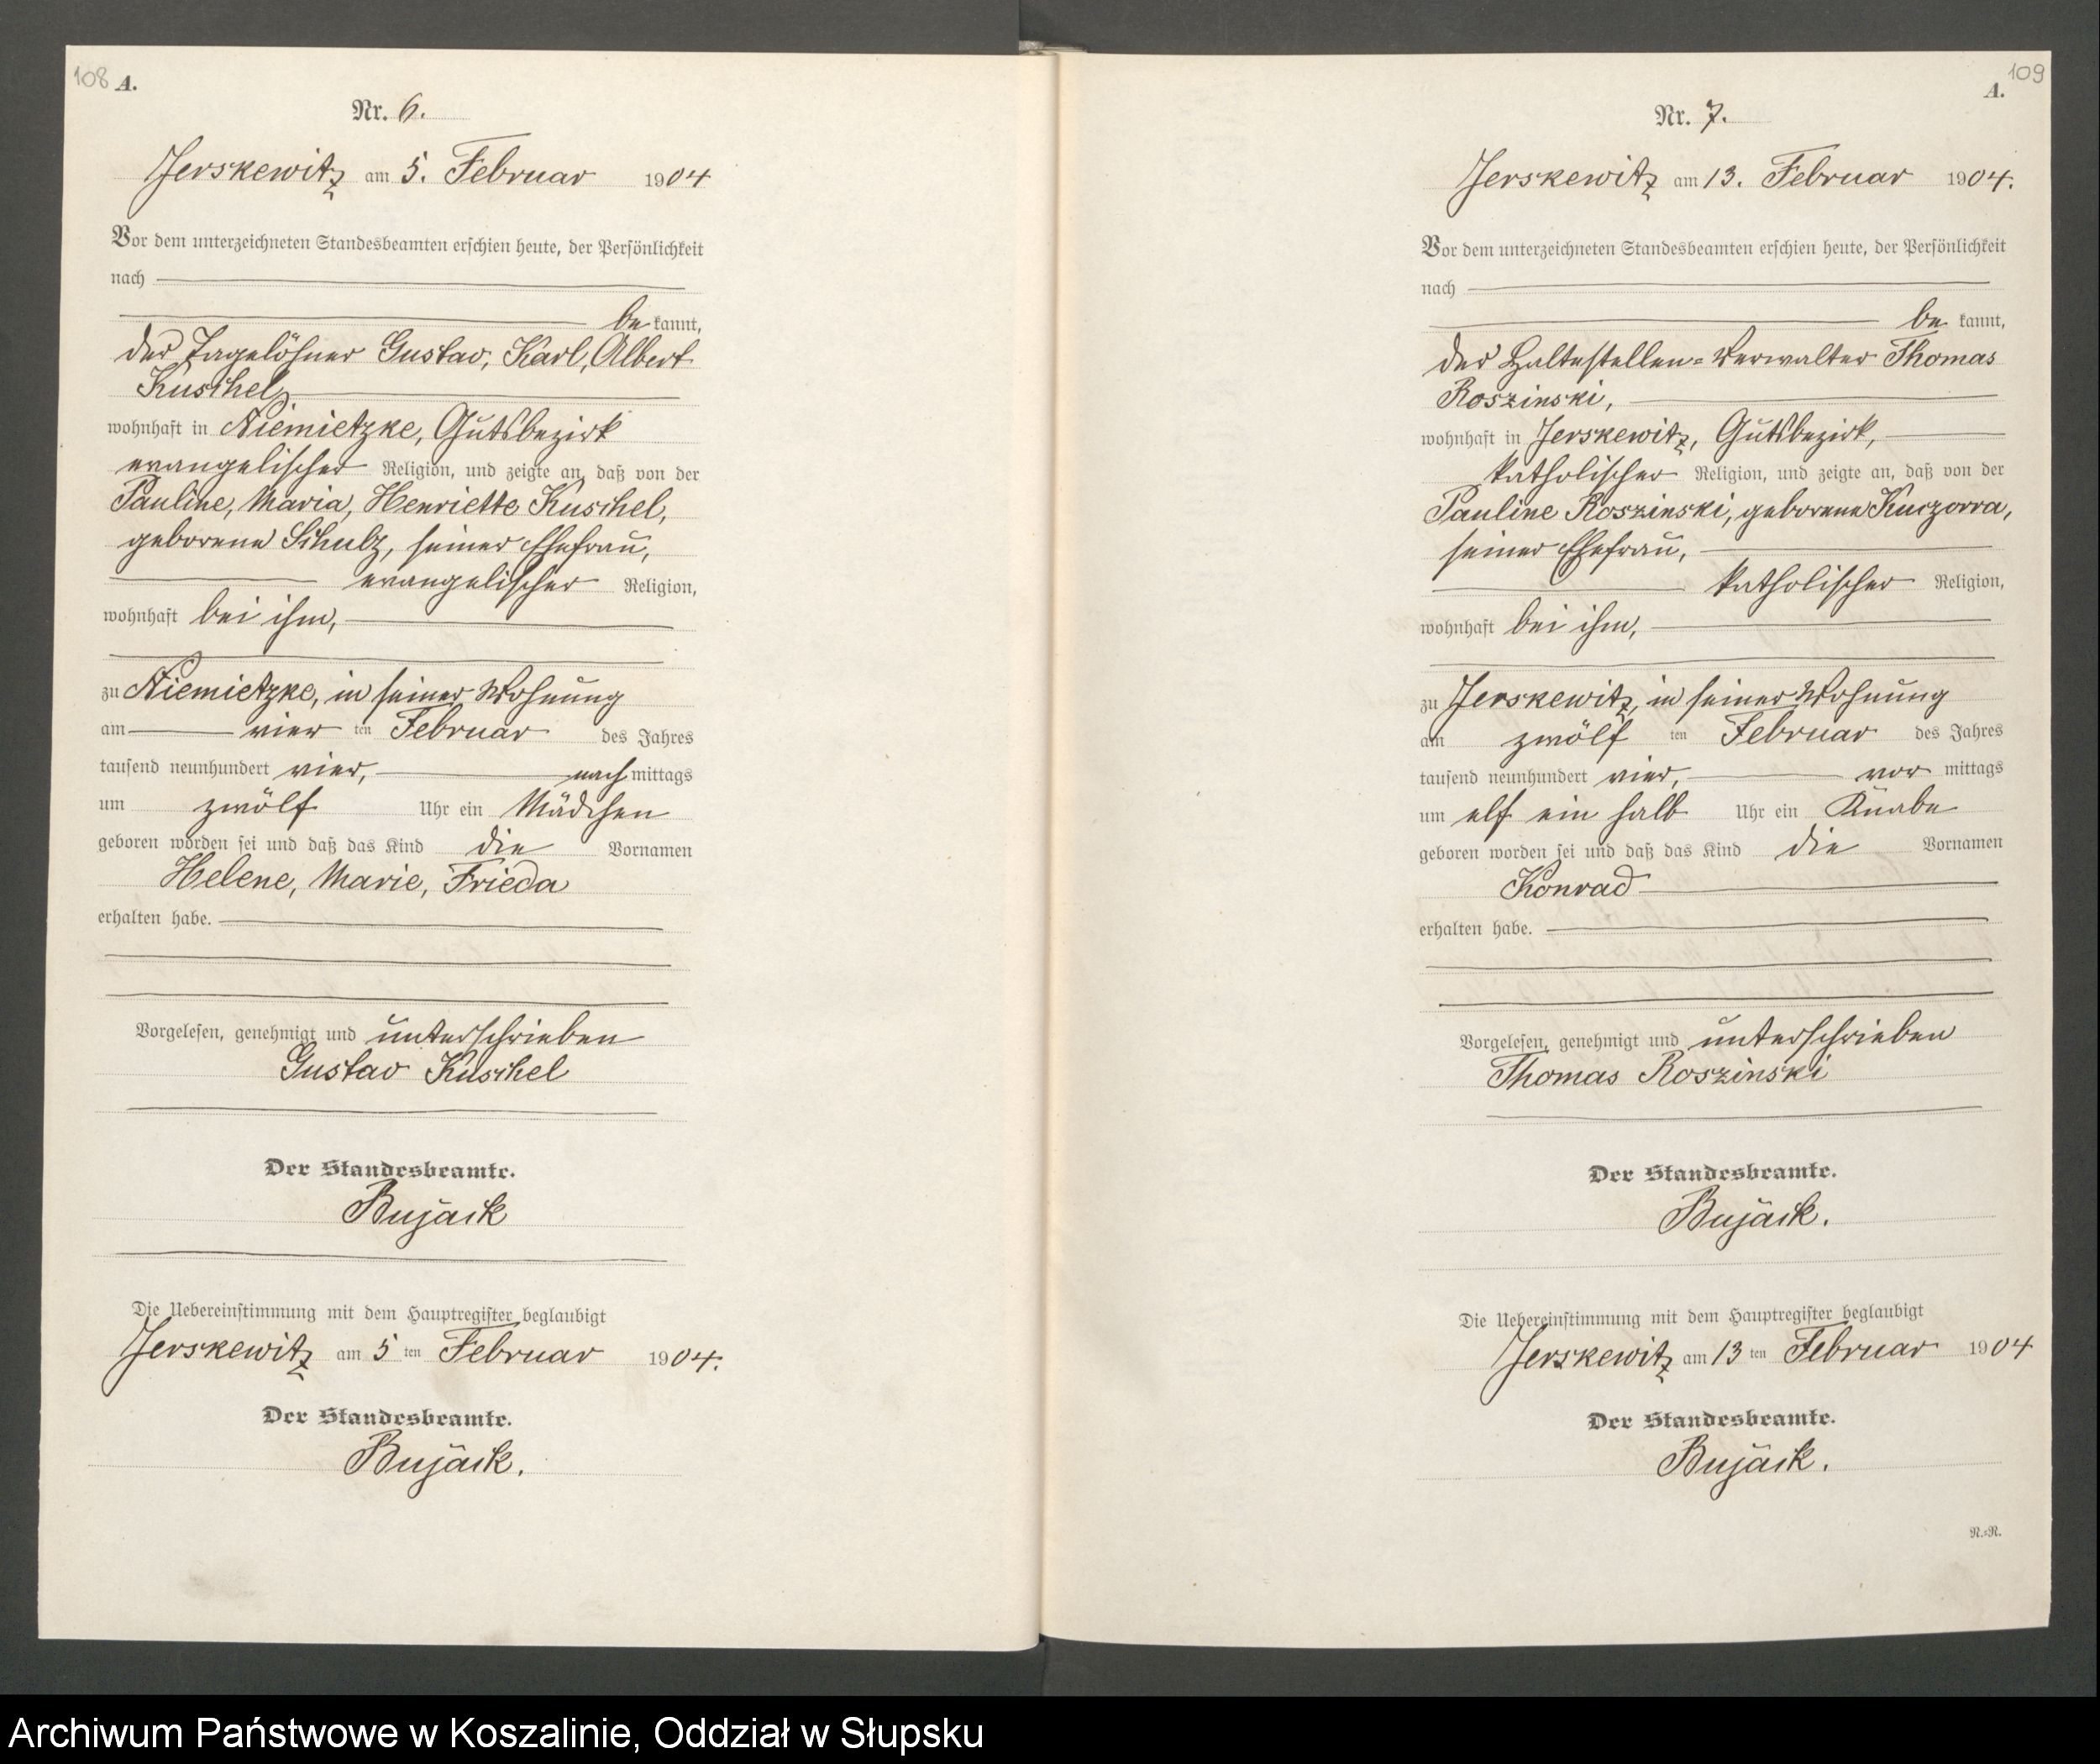 108 A.
Nr. 6.
Jerskewitz am 5. Februar 1904
Vor dem unterzeichneten Standesbeamten erschien heute, der Persönlichkeit
nach
be kannt,
der Tagelöhner Gustav, Karl, Albert
Kuschel,
wohnhaft in Niemietzke, Gutsbezirk
evangelischer Religion, und zeigte an, daß von der
Pauline, Maria, Henriette Kuschel,
geborene Schulz, seiner Ehefrau,
evangelischer Religion,
wohnhaft bei ihm,
zu Niemietzke, in seiner Wohnung
am vier ten Februar des Jahres
tausend neunhundert vier, nach mittags
um zwölf Uhr ein Mädchen
geboren worden sei und daß das Kind die Vornamen
Helene, Marie, Frieda
erhalten habe.
Vorgelesen, genehmigt und unterschrieben
Gustav Kuschel
Der Standesbeamte.
Bujack
Die Uebereinstimmung mit dem Hauptregister beglaubigt
Jerskewitz am 5 ten Februar 1904.
Der Standesbeamte.
Bujack.
109
A.
Nr. 7.
Jerskewitz am 13. Februar 1904.
Vor dem unterzeichneten Standesbeamten erschien heute, der Persönlichkeit
nach
be kannt,
der Haltestellen=Verwalter Thomas
Roszinski,
wohnhaft in Jerskewitz, Gutsbezirk,
katholischer Religion, und zeigte an, daß von der
Pauline Roszinski, geborene Kuczorra,
seiner Ehefrau,
katholischer Religion,
wohnhaft bei ihm,
zu Jerskewitz, in seiner Wohnung
am zwölf ten Februar des Jahres
tausend neunhundert vier, vor mittags
um elf ein halb Uhr ein Knabe
geboren worden sei und daß das Kind die Vornamen
Konrad
erhalten habe.
Vorgelesen, genehmigt und unterschrieben
Thomas Roszinski
Der Standesbeamte.
Bujack.
Die Uebereinstimmung mit dem Hauptregister beglaubigt
Jerskewitz am 13 ten Februar 1904
Der Standesbeamte.
Bujack.
N.=R.
Archiwum Państwowe w Koszalinie, Oddział w Słupsku